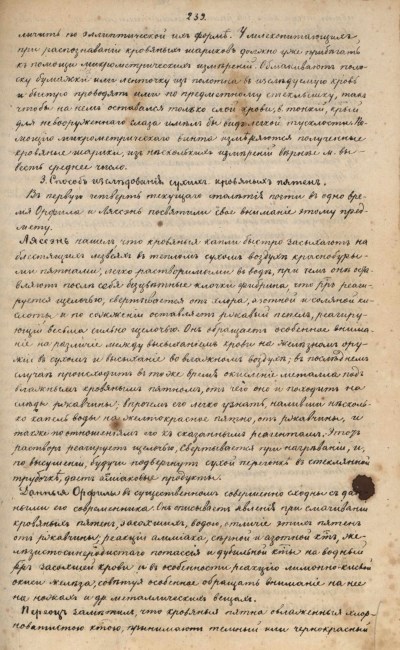 239.
личить по эллиптической их формѣ. У млекопитающихъ
при распознаваніи кровяныхъ шариковъ должно уже прибѣгать
къ помощи микрометрическихъ измѣреній. Обмакиваютъ поло-
ску бумажки или ленточку изъ полотна въ изслѣдуемую кровь
и быстро проводятъ ими по предметному стеклышку, такъ
чтобы на немъ оставался только слой крови, тонкій,
для невооруженнаго глаза имѣлъ бы видъ легкой тусклости. По-
мощію микрометрическаго винта измѣряются полученные
кровяные шарики, изъ нѣсколькихъ измѣреній вѣрнѣе м. вы-
весть среднее число.
3. Способъ изслѣдованія сухихъ кровяныхъ пятенъ.
Въ первую четверть текущаго столѣтія почти въ одно вре-
мя Орфила и Лассэнь посвятили свое вниманіе этому пред-
мету.
Лассэнь нашелъ что кровяныя капли быстро засыхаютъ на
блестящихъ лезвеяхъ въ тепломъ сухомъ воздухѣ краснобуры-
ми пятнами, легко растворимыми въ водѣ, при чемъ они оста-
вляютъ послѣ себя безцвѣтные клочки фибрина, что рръ реаги-
руется щелочью, свертывается отъ хлора, азотной и соляной ки-
слоты и по сожженіи оставляетъ ржавый пепелъ, реагиру-
ющій весьма сильно щелочью. Онъ обращаетъ особенное внима-
ніе на различіе между высыханіемъ крови на желѣзномъ ору-
жіи въ сухомъ и высыханіе во влажномъ воздухѣ; въ послѣднемъ
случаѣ происходитъ въ тоже время окисленіе металла подъ
влажнымъ кровянымъ пятномъ, отъ чего оно и походитъ на
слѣды ржавчины; впрочемъ его легко узнать, наливши нѣсколь-
ко капель воды на желтокрасное пятно, отъ ржавчины, и
также по отношеніямъ его къ сказаннымъ реагентамъ. Этотъ
растворъ реагируетъ щелочью, свертывается при нагрѣваніи, и,
по высушеніи, будучи подвергнутъ сухой перегонкѣ въ стеклянной
трубочкѣ, дастъ амміаковые продукты.
Данныя Орфилы въ существенномъ совершенно сходны съ дан-
ными его современника. Онъ описываетъ явленія при смачиваніи
кровяныхъ пятенъ, засохшихъ, водою, отличіе этихъ пятенъ
отъ ржавчины, реакціи амміака, сѣрной и азотной кты, же-
лѣзистосинеродистаго потассія и дубильной кты на водный
рръ засохшей крови и въ особенности реакцію лимонно-кислой
окиси желѣза, совѣтуя особенное обращать вниманіе на нее
на ножахъ и др. металлическихъ вещахъ.
замѣтилъ, что кровяныя пятна овлаженныя хлор-
новатистою ктою, принимаютъ темный или чернокрасный